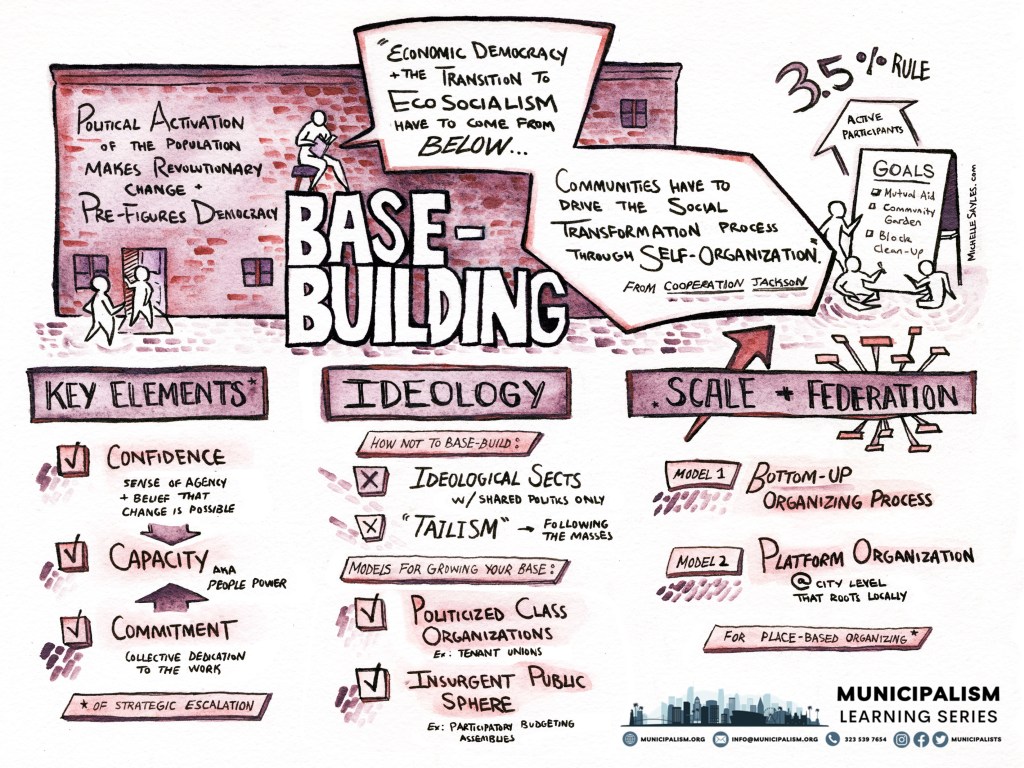 Political Activation
of the Population
makes Revolutionary
change +
Pre-Figures Democracy
"Economic Democracy
+ the Transition to
EcoSocialism
have to come from
BELOW...
Communities have to
drive the Social
Transformation process
through Self-Organization."
From Cooperation Jackson
BASE-
BUILDING
3.5% Rule
Active
Participants
GOALS
Mutual Aid
Community
Garden
Block
Clean-Up
MichelleSayles.com
Key Elements*
Confidence
sense of agency
+ belief that
change is possible
Capacity aka
people power
Commitment
collective dedication
to the work
* of strategic escalation
Ideology
How not to base-build:
Ideological Sects
w/ shared politics only
"Tailism" → following
the masses
Models for growing your base:
Politicized Class
Organizations
Ex: tenant unions
Insurgent Public
Sphere
Ex: Participatory budgeting
assemblies
Scale + Federation
Model 1 Bottom-up
Organizing Process
Model 2 Platform Organization
@ city level
that roots locally
for place-based organizing*
MUNICIPALISM
LEARNING SERIES
MUNICIPALISM.ORG INFO@MUNICIPALISM.ORG 323 539 7654 MUNICIPALISTS